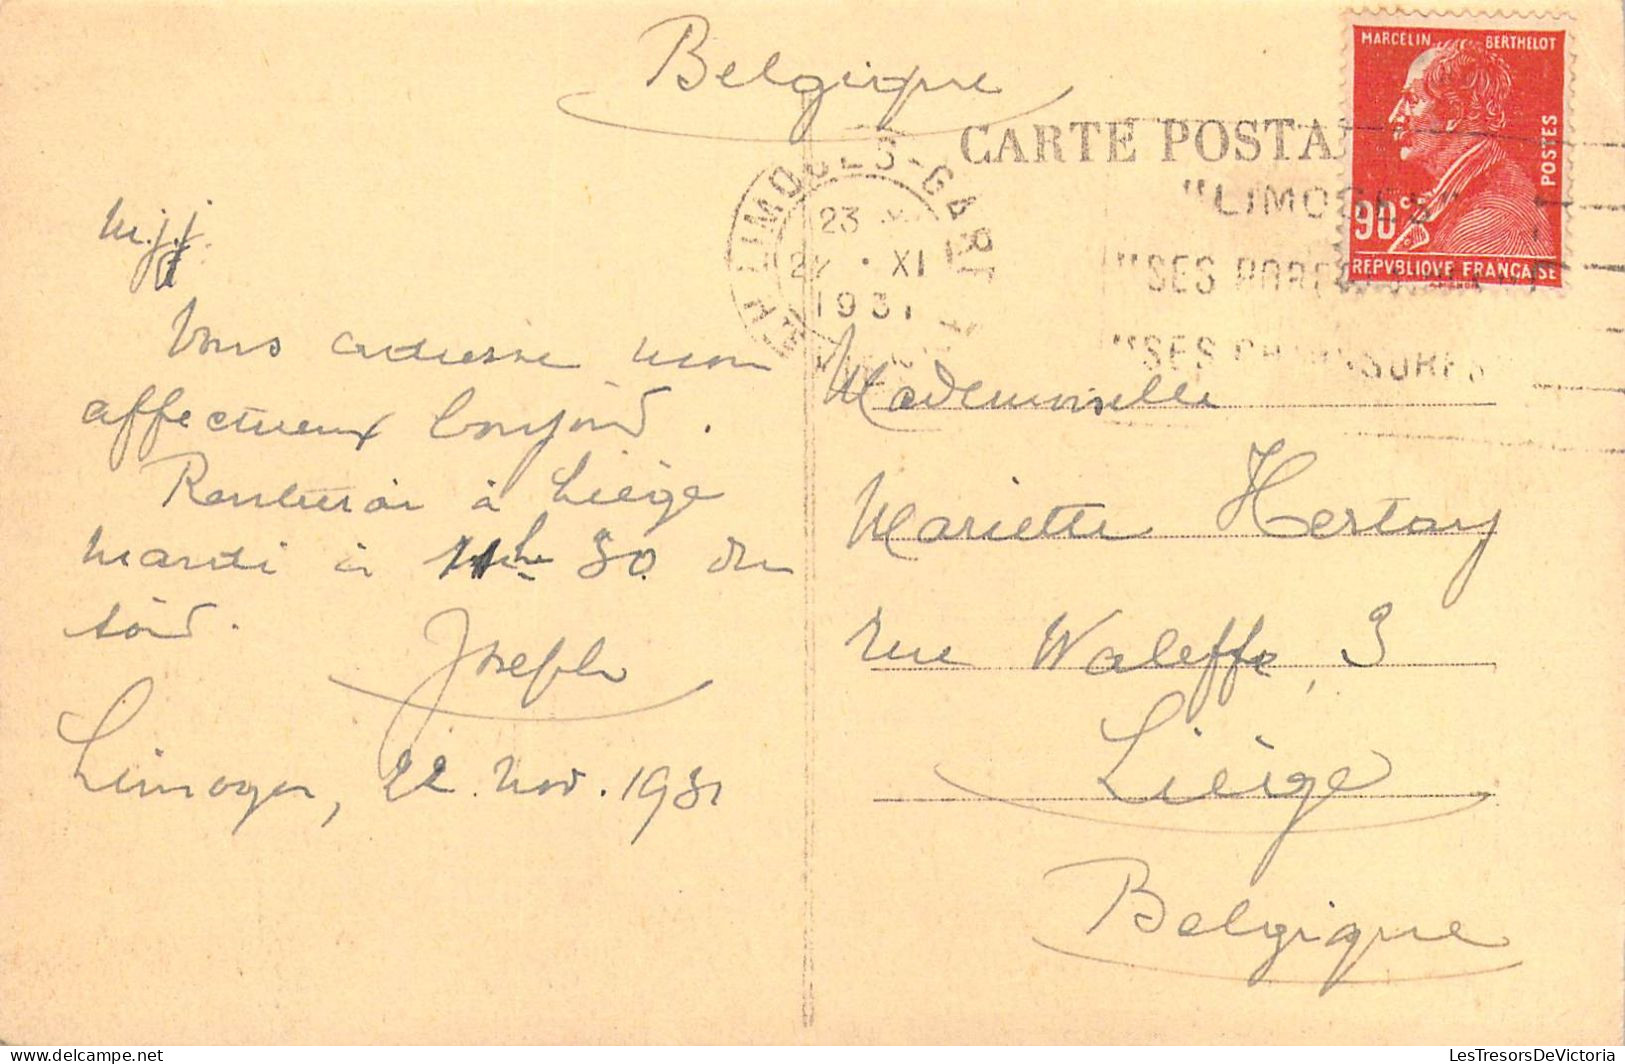 Belgique
CARTE POSTA
MARCELIN BERTHELOT
POSTES
90c
REPVBLIQVE FRANÇAISE
LIMOGES-GARE
23
22 · XI
1931
"LIMOGES"
"SES PORCELAINES"
"SES CHAUSSURES"
M.j.j.
Vous adresse mon
affectueux bonjour.
Rentrerai à Liège
mardi à 11h 30 du
soir.
Joseph
Limoges, 22 nov. 1931
Mademoiselle
Mariette Hertay
rue Waleffe, 3
Liège
Belgique
LesTresorsDeVictoria